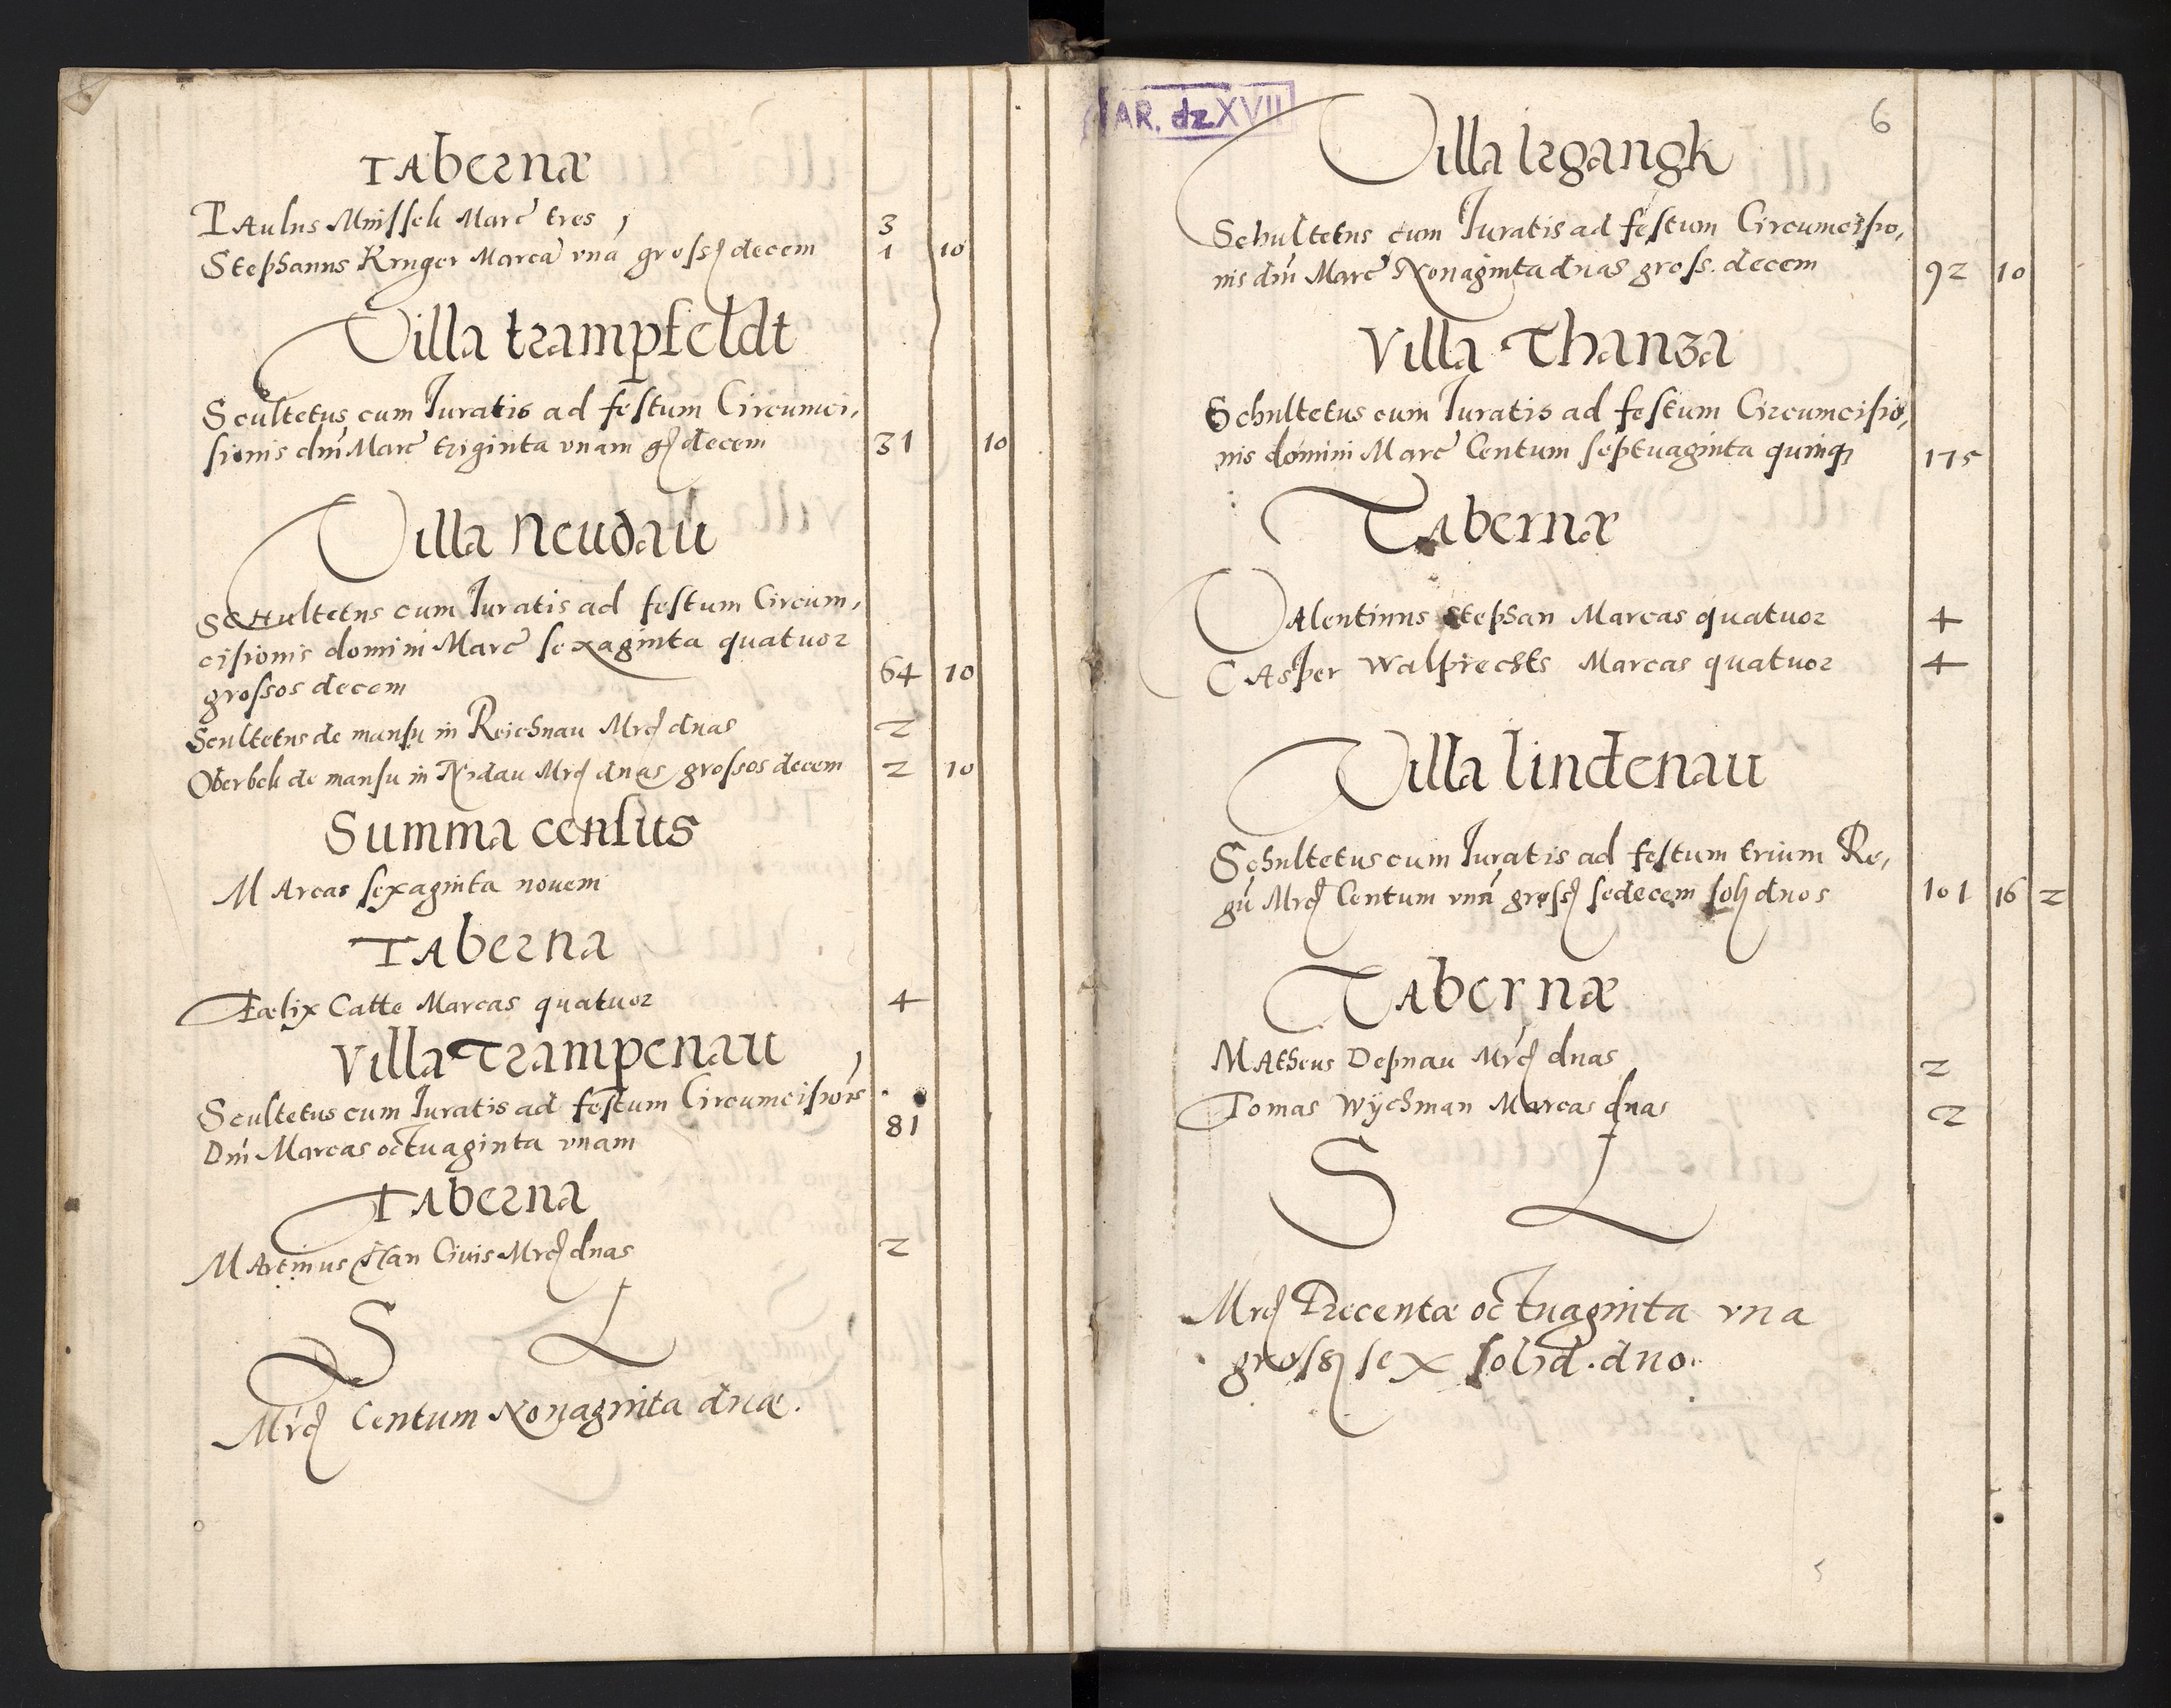 Tabernæ
Paulus Minssek Marc tres 3
Stephanus Kruger Marcã vnã gross decem 1 10
Villa trampfeldt
Scultetus cum Iuratis ad festum Circumci,
sionis dni Marc triginta vnam g decem 31 10
Villa Neudau
Schultetus cum Iuratis ad festum Circum,
cisionis domini Marc sexaginta quatuor
grossos decem 64 10
Scultetus de mansu in Reichnau Mrc duas 2
Oberbek de mansu in Nidau Mrc duas grossos decem 2 10
Summa census
Marcas sexaginta nouem
Taberna
Fælix Catte Marcas quatuor 4
Villa Trampenau
Scultetus cum Iuratis ad festum Circumcisiois
Dni Marcas octuaginta vnam 81
Taberna
Martinus Han Ciuis Mrc duas 2
S L
Mrc Centum Nonaginta duæ.
AR. dz XVII
6
Villa Irgangk
Schultetus cum Iuratis ad festum Circumcisio,
nis dni Marc Nonaginta duas gross. decem 92 10
Villa Thanza
Schultetus cum Iuratis ad festum Circumcisio,
nis domini Marc Centum septuaginta quinq 175
Tabernæ
Valentinus Stephan Marcas quatuor 4
Casper Walprechts Marcas quatuor 4
Villa lindenau
Schultetus cum Iuratis ad festum trium Re,
gũ Mrc Centum vnã gross sedecem sol duos 101 16 2
Tabernæ
Matheus Depnau Mrc duas 2
Tomas Wÿchman Marcas duas 2
S L
Mrc Trecentæ octuaginta vna
gross sex solid. duo.